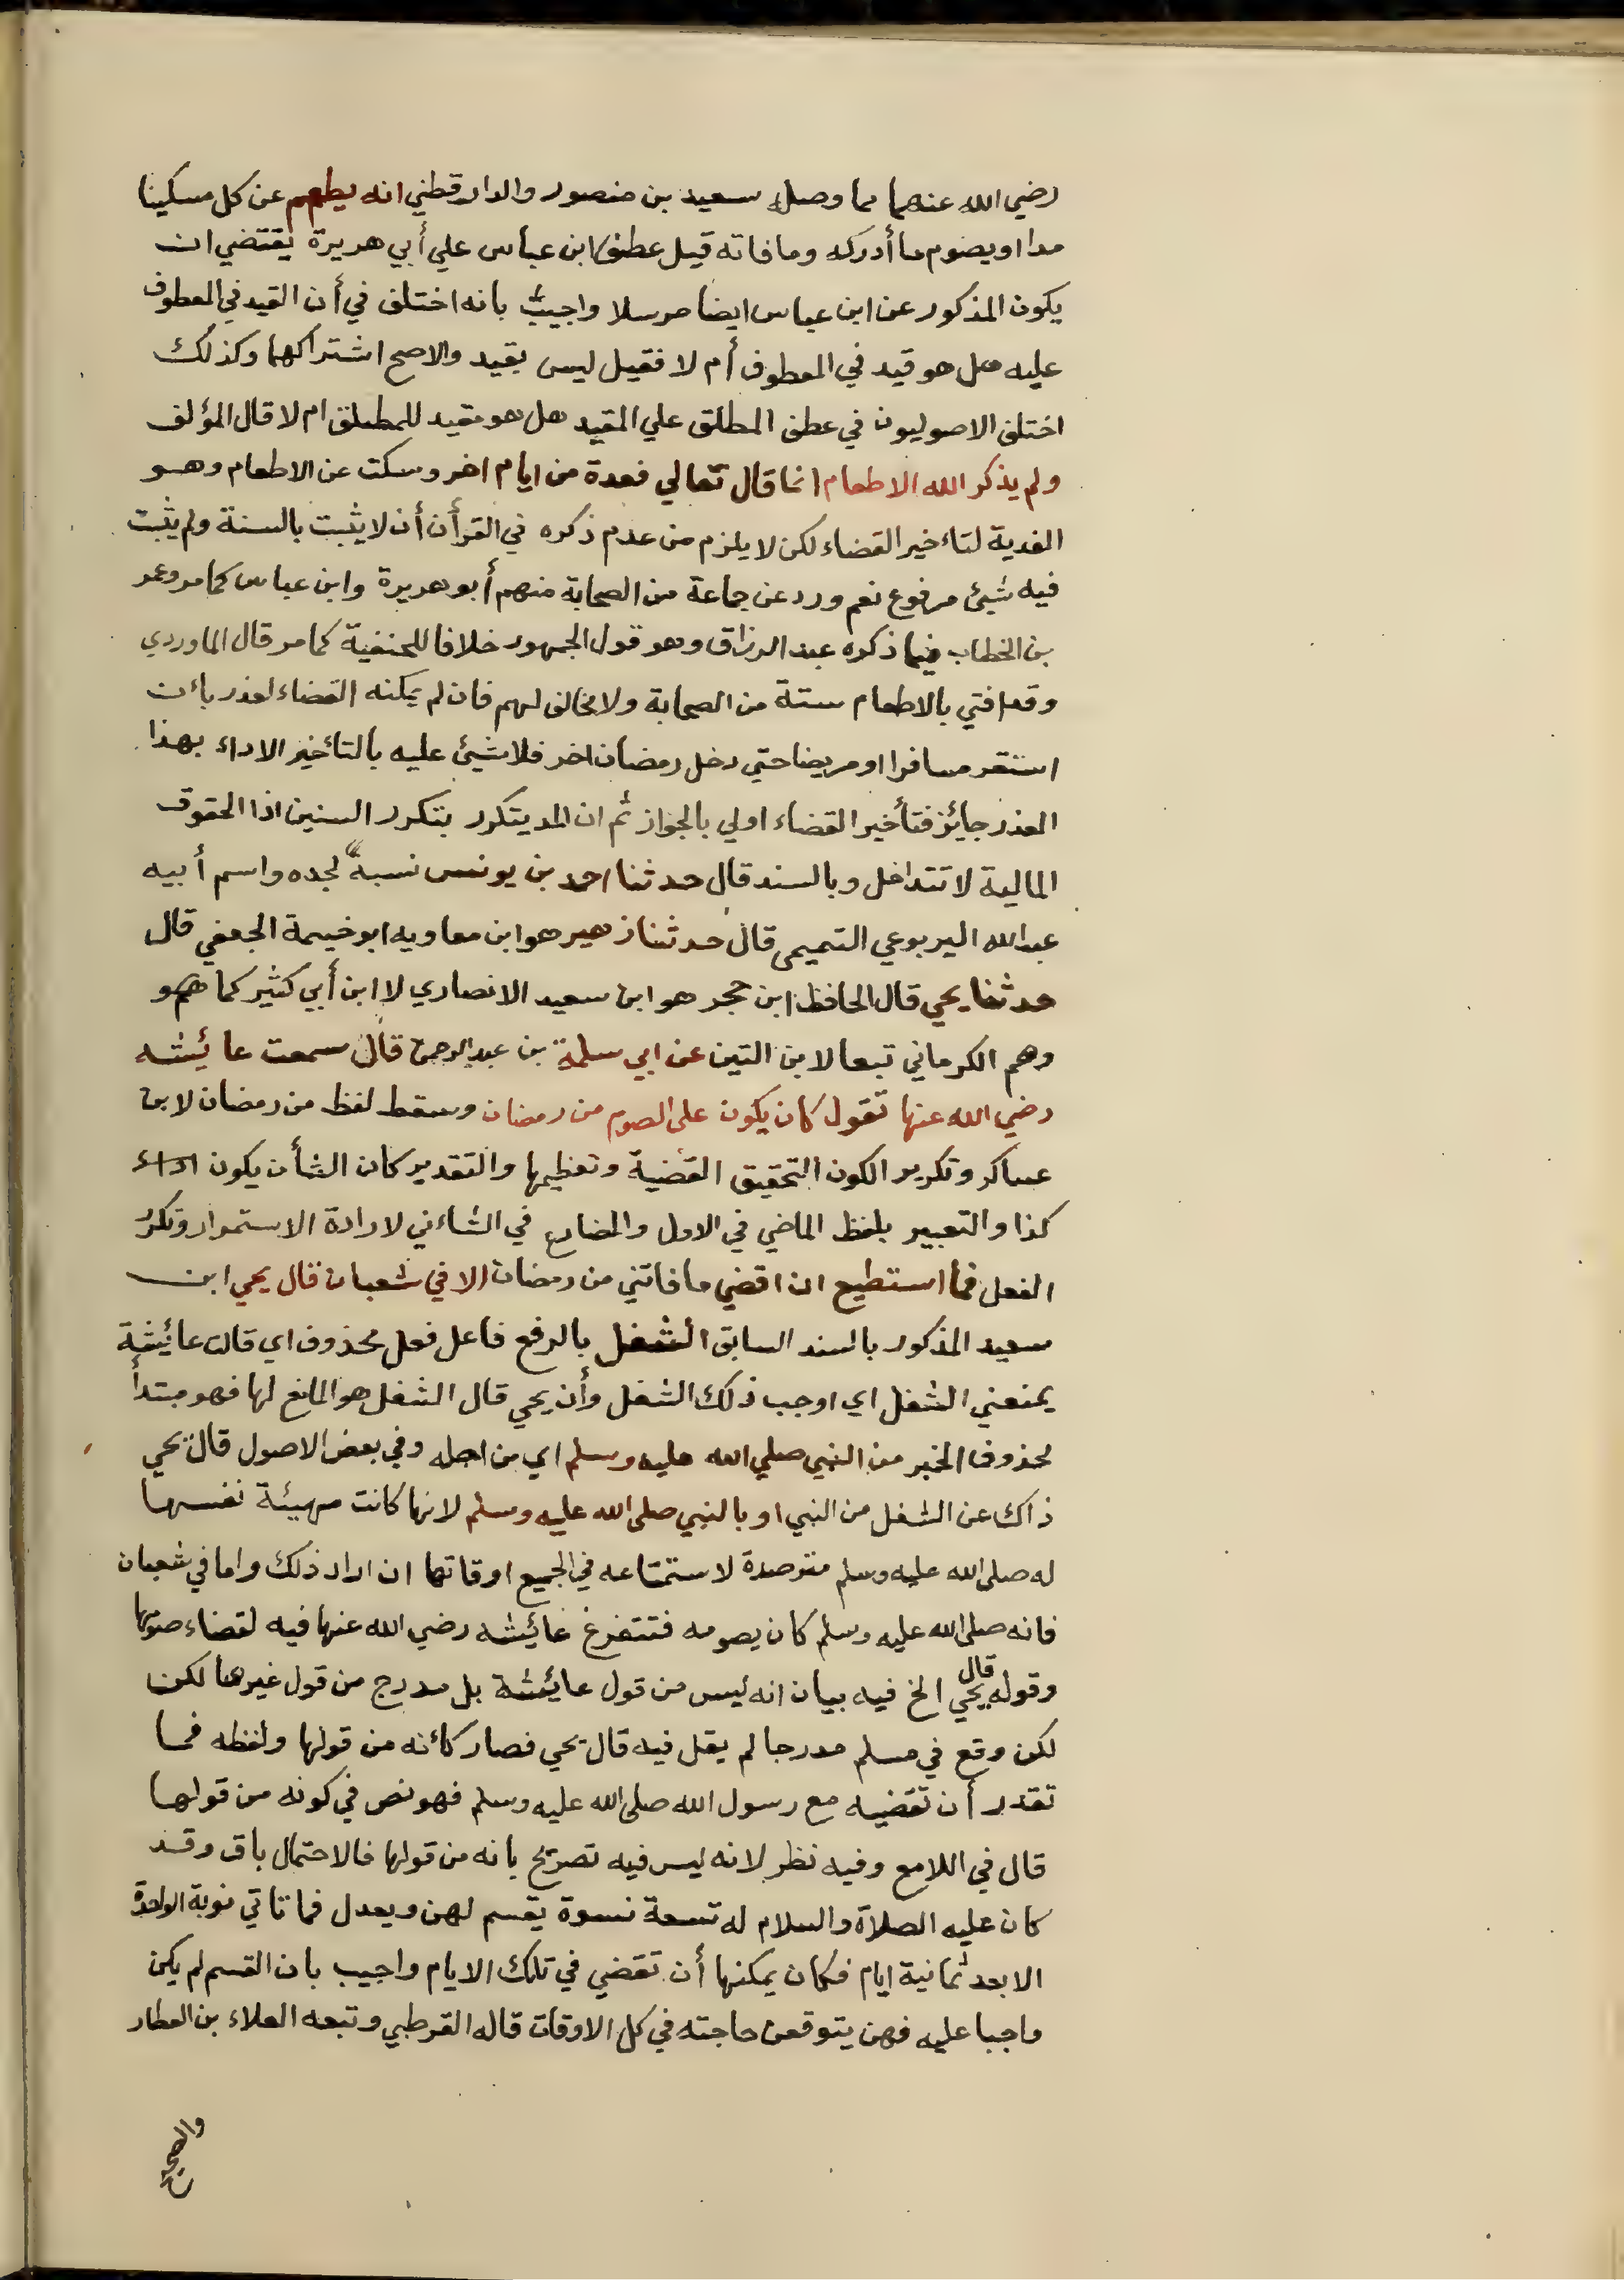 رضي الله عنهما مما وصله سعيد بن منصور والدارقطني انه يطعم عن كل مسكينا
مدا ويصوم ما أدركه وما فاته قيل عطف ابن عباس علي أبي هريرة يقتضي ان
يكون المذكور عن ابن عباس ايضا مرسلا واجيب بانه اختلف في أن القيد في المعطوف
عليه هل هو قيد في المعطوف أم لا فقيل ليس بقيد والاصح اشتراكهما وكذلك
اختلف الاصوليون في عطف المطلق علي المقيد هل هو مقيد للمطلق ام لا قال المؤلف
ولم يذكر الله الاطعام انما قال تعالي فعدة من ايام اخر وسكت عن الاطعام وهو
الفدية لتاءخير القضاء لكن لا يلزم من عدم ذكره في القرأن أن لا يثبت بالسنة ولم يثبت
فيه شيئ مرفوع نعم ورد عن جماعة من الصحابة منهم أبو هريرة وابن عباس كما مر وعمر
بن الخطاب فيما ذكره عبد الرزاق وهو قول الجمهور خلافا للحنفية كما مر قال الماوردي
وقد افتي بالاطعام ستة من الصحابة ولا مخالف لهم فان لم يمكنه القضاء لعذر باءن
استقر مسافرا او مريضا حتي دخل رمضان اخر فلا شيئ عليه بالتأخير الاداء بهذا
العذر جائز فتأخير القضاء اولي بالجواز ثم ان المد يتكرر بتكرر السنين اذا الحقوق
المالية لا تتداخل وبالسند قال حدثنا احمد بن يونس نسبة لجده واسم أبيه
عبد الله اليربوعي التميمي قال حدثنا زهير هو ابن معاويه ابو خيمة الجعفي قال
حدثنا يحي قال الحافظ ابن حجر هو ابن سعيد الانصاري لا ابن أبي كثير كما هو
وهم الكرماني تبعا لابن التين عن ابي سلمة بن عبد الرحمن قال سمعت عائشه
رضي الله عنها تقول كان يكون على الصوم من رمضان وسقط لفظ من رمضان لابن
عساكر وتكرير الكون التحقيق القضية وتعظيمها والتقدير كان الشأن يكون اداء
كذا والتعبير بلفظ الماضي في الاول والمضارع في الثاءني لارادة الاستمرار وتكرر
الفعل فما استطيع ان اقضي ما فاتني من رمضان الا في شعبان قال يحي ابن
سعيد المذكور بالسند السابق الشغل بالرفع فاعل فعل محذوف اي قالت عائشة
يمنعني الشغل اي اوجب ذلك الشغل وأن يحي قال الشغل هو المانع لها فهو مبتدأ
محذوف الخبر من النبي صلي الله عليه وسلم اي من اجله وفي بعض الاصول قال يحي
ذاك عن الشغل من النبي او بالنبي صلى الله عليه وسلم لانها كانت مهيئة نفسها
له صلى الله عليه وسلم مترصدة لاستمتاعه في الجميع اوقاتها ان اراد ذلك واما في شعبان
فانه صلى الله عليه وسلم كان يصومه فتتفرغ عائشه رضي الله عنها فيه لقضاء صومها
وقوله قال يحي الخ فيه بيان انه ليس من قول عائشة بل مدرج من قول غيرها لكن
لكن وقع في مسلم مدرجا لم يقل فيه قال يحي فصار كاءنه من قولها ولفظه فما
تقدر أن تقضيه مع رسول الله صلى الله عليه وسلم فهو نص في كونه من قولها
قال في اللامع وفيه نظر لانه ليس فيه تصريح بانه من قولها فالاحتمال باق وقد
كان عليه الصلاة والسلام له تسعة نسوة يقسم لهن ويعدل فما تاتي نوبة الواحدة
الا بعد ثمانية ايام فكان يمكنها أن تقضي في تلك الايام واجيب بان القسم لم يكن
واجبا عليه فهن يتوقعن حاجته في كل الاوقات قاله القرطبي وتبعه العلاء بن العطار
والصحيح